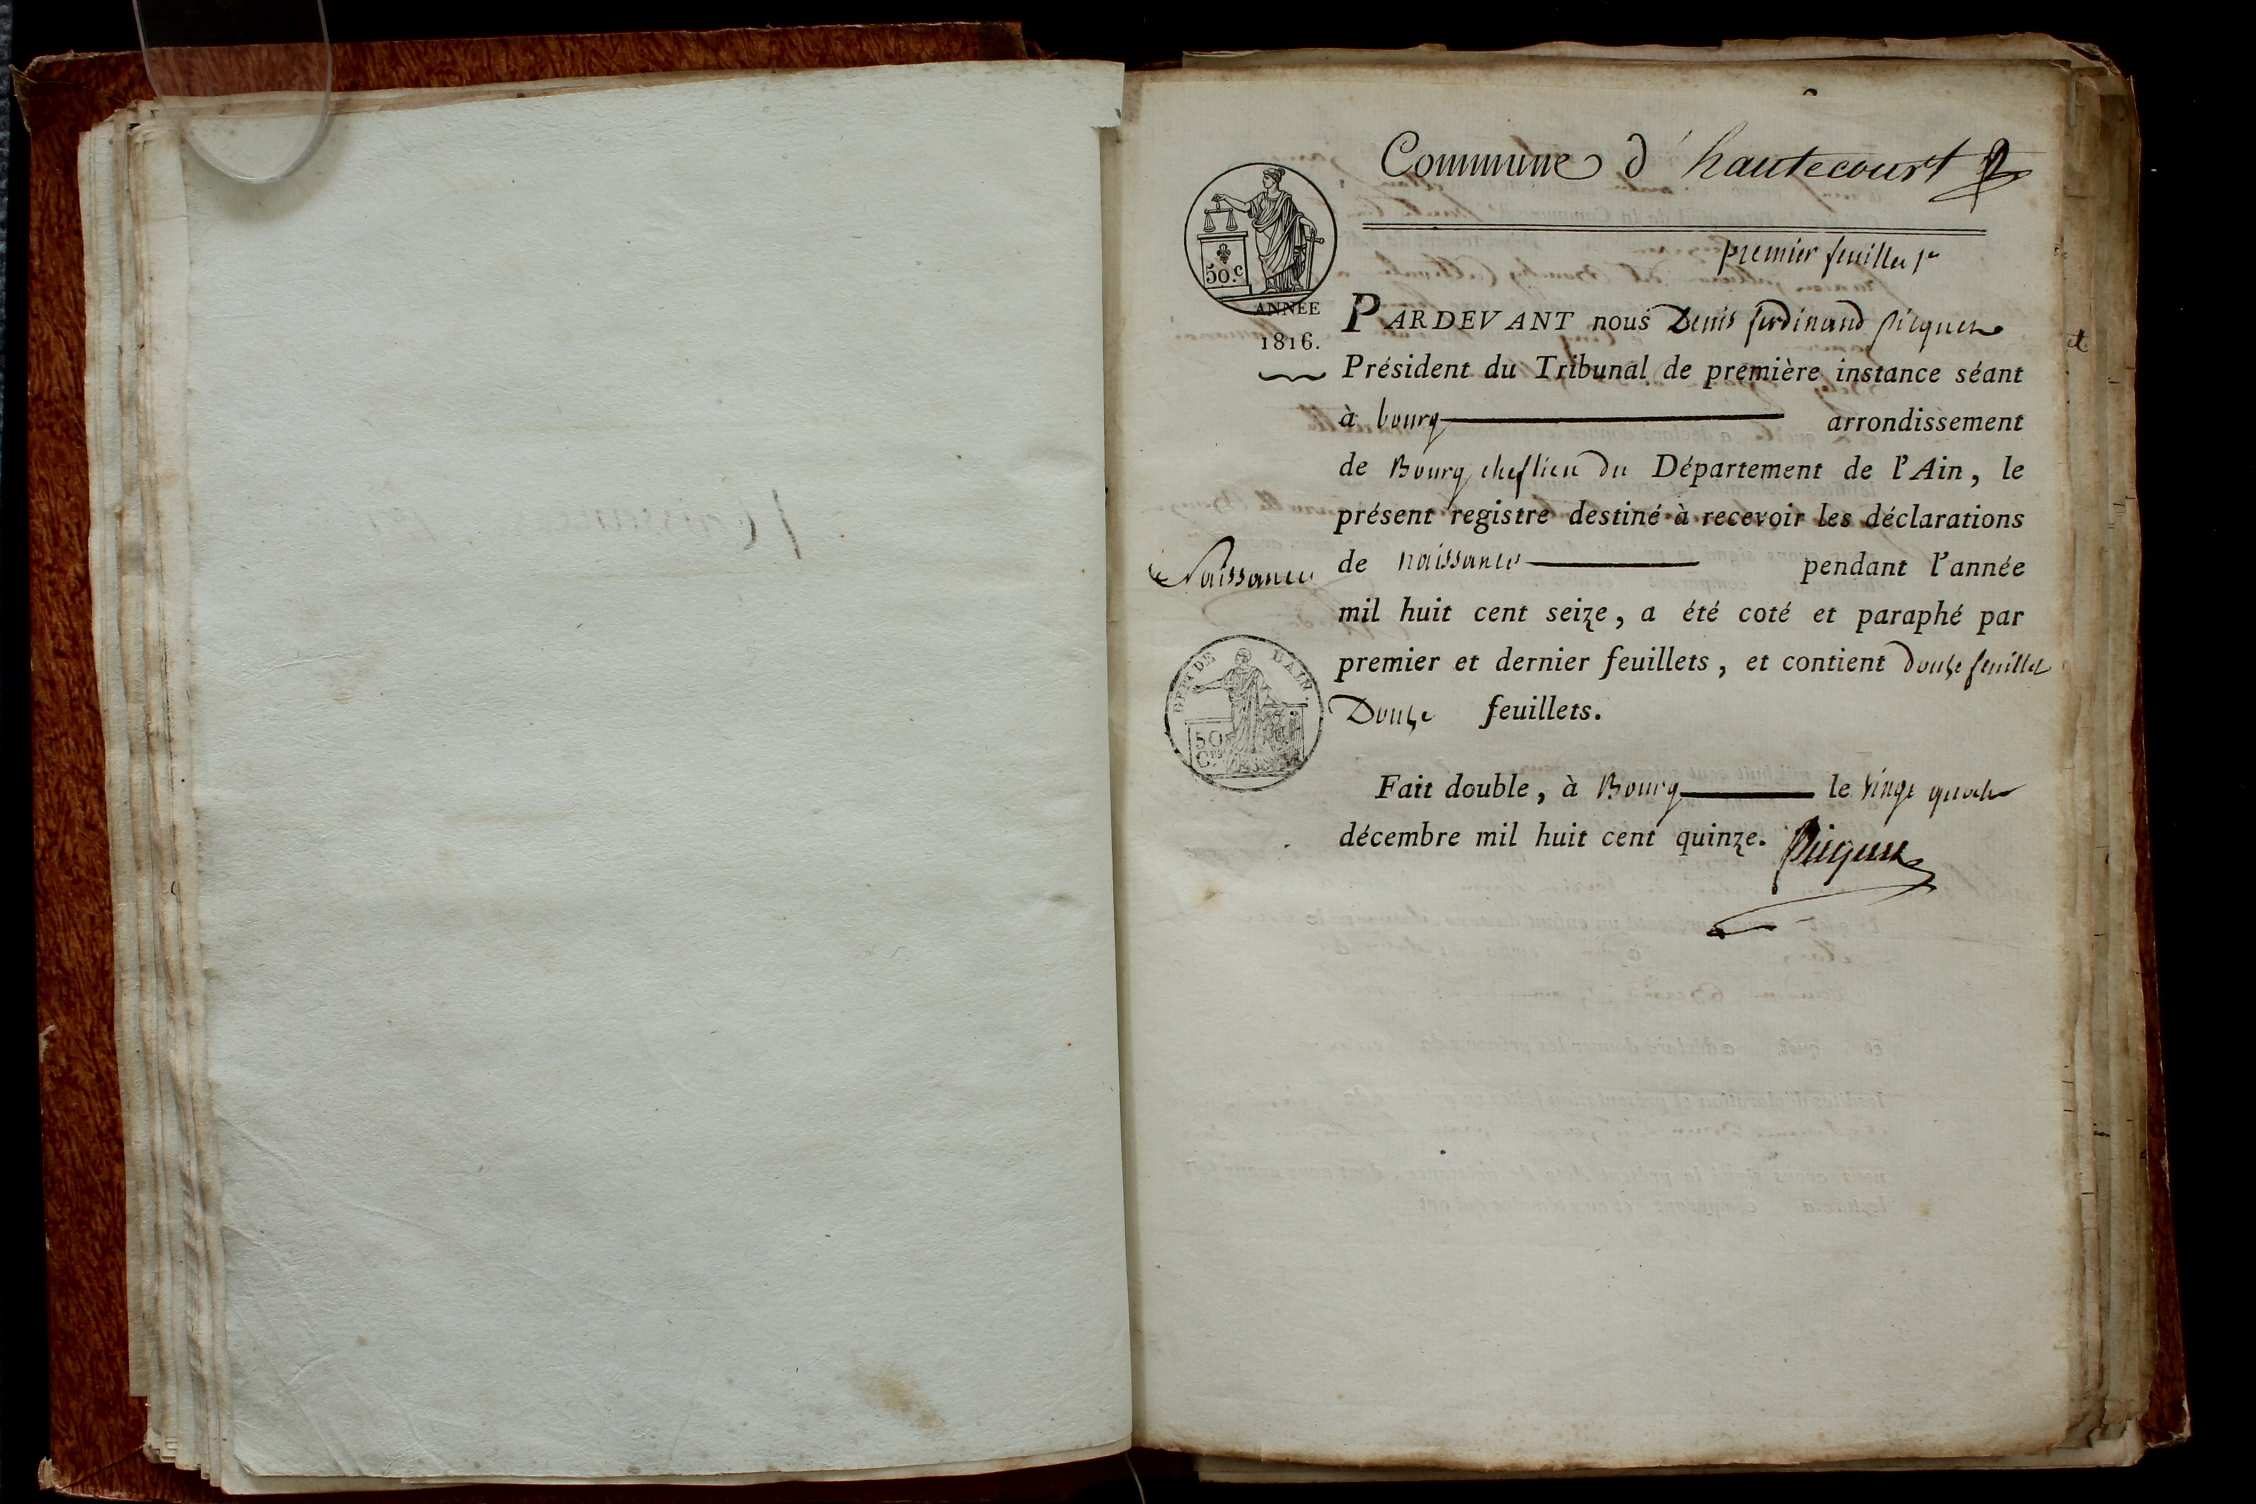 Commune d'hautecourt
premier feuillet 1er
50.c
ANNÉE
1816.
PARDEVANT nous Denis ferdinand picquet
Président du Tribunal de première instance séant
à bourg arrondissement
de Bourg cheflieu du Département de l'Ain, le
présent registre destiné à recevoir les déclarations
Naissances
de naissances pendant l'année
mil huit cent seize, a été coté et paraphé par
premier et dernier feuillets, et contient douze feuillet
Douze feuillets.
DEPT DE L'AIN.
50
Ces
Fait double, à Bourg le vingt quatre
décembre mil huit cent quinze. Picquet